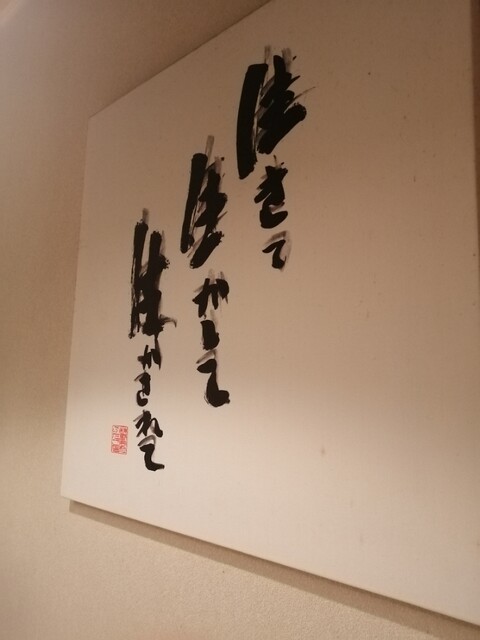 生きて
生かして
生かされて